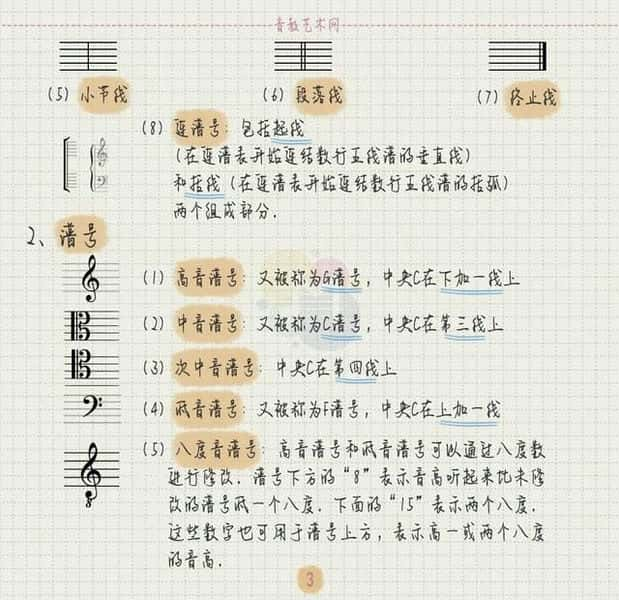 音教艺术网
(5) 小节线 (6) 段落线 (7) 终止线
(8) 连谱号：包括起线
(在连谱表开始连结数行五线谱的垂直线)
和括线 (在连谱表开始连结数行五线谱的括弧)
两个组成部分.
2、谱号
(1) 高音谱号：又被称为G谱号，中央C在下加一线上
(2) 中音谱号：又被称为C谱号，中央C在第三线上
(3) 次中音谱号：中央C在第四线上
(4) 低音谱号：又被称为F谱号，中央C在上加一线
(5) 八度音谱号：高音谱号和低音谱号可以通过八度数
进行修改. 谱号下方的“8”表示音高听起来比未修
改的谱号低一个八度. 下面的“15”表示两个八度.
这些数字也可用于谱号上方，表示高一或两个八度
的音高.
8
3